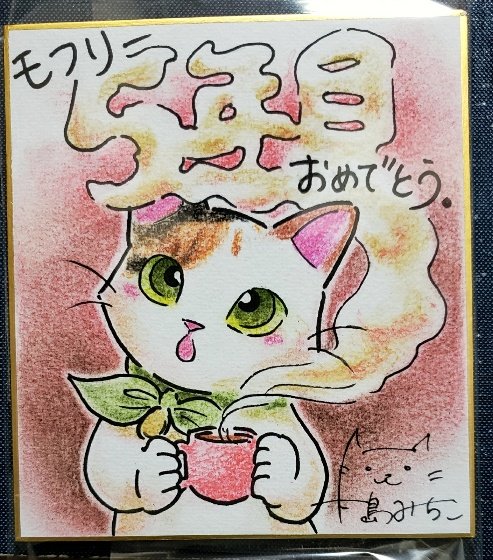 モフリニ
5年目
おめでとう。
島みちこ